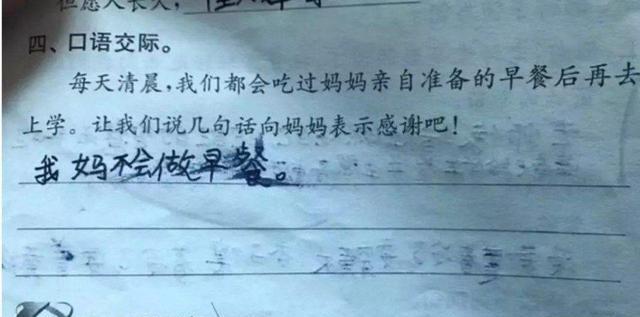 但愿人长久，
四、口语交际。
每天清晨，我们都会吃过妈妈亲自准备的早餐后再去
上学。让我们说几句话向妈妈表示感谢吧！
我妈不会做早餐。